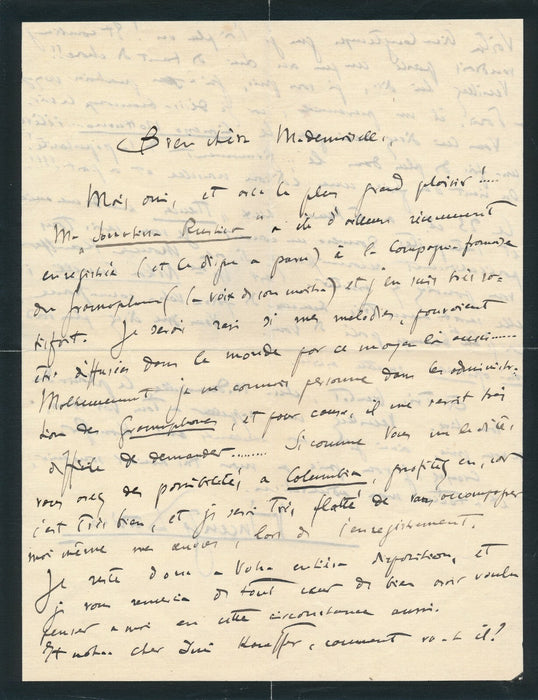 Bien chère Mademoiselle,
Mais oui, et avec le plus grand plaisir !....
Ma "Sonatina Rustica" a été d'ailleurs récemment
enregistrée (et le disque a paru) à la Compagnie française
du Gramophone (la voix de son maître) et j'en suis très sa-
tisfait. Je serai ravi si mes mélodies, pouvaient
être diffusées dans le monde par ce moyen là aussi......
Malheureusement je ne connais personne dans les administra-
tion des Gramophones, et pour cause, il me serait très
difficile de demander......... Si comme vous me le dites,
vous avez des possibilités à Columbia, profitez en, car
c'est très bien, et je serai très flatté de vous accompagner
moi même mes œuvres, lors de l'enregistrement.
Je reste donc à votre entière disposition, et
je vous remercie de tout cœur de bien avoir voulu
penser à moi en cette circonstance aussi.
Et notre cher ami, comment va-t-il ?